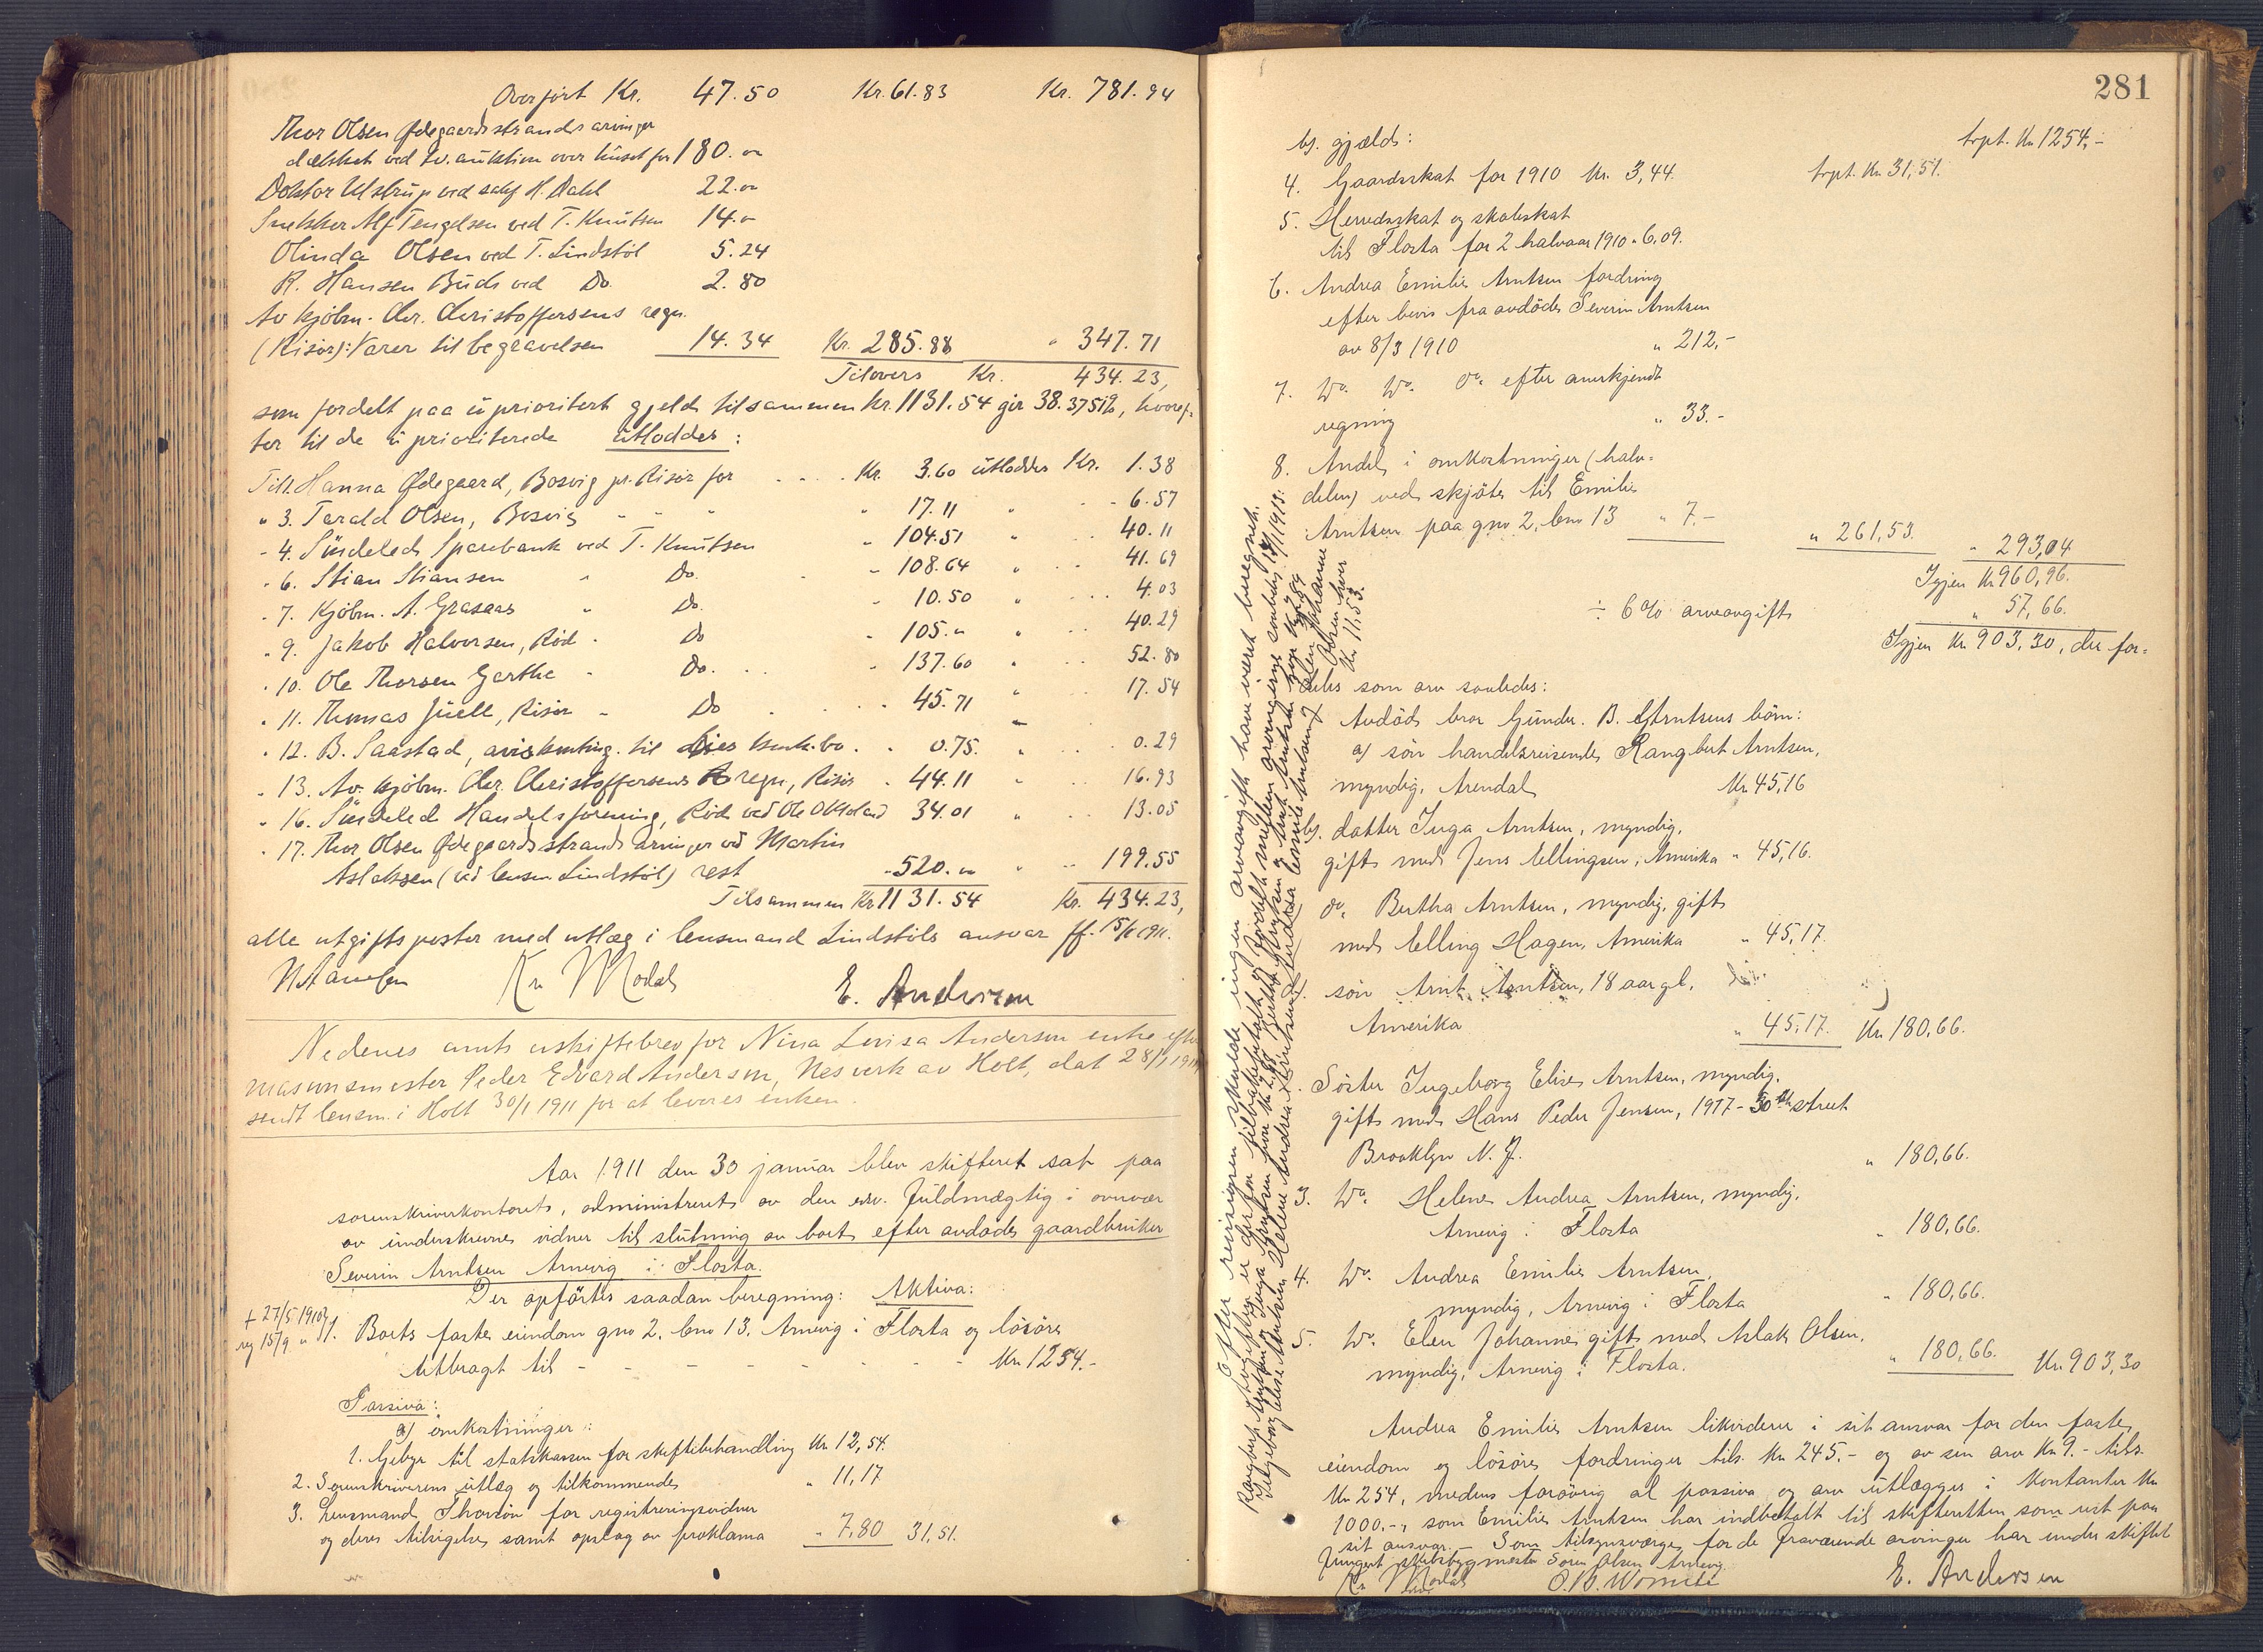 Overført Kr. 47.50 Kr. 61.83 Kr. 781.94
Thor Olsen Ødegaardsstrands arvinger
dækket ved tv. auktion over huset for 180.00
Doktor Ulstrup ved sakf. H. Dahl 22.00
Snekker Alf Tengelsen ved T. Knutsen 14.00
Olinda Olsen ved T. Lindstöl 5.24
R. Hansen Buds ved Do. 2.80
Av kjöbm. Chr. Christoffersens regn.
(Risör): Varer til begravelsen 14.34 Kr. 285.88 " 347.71
Tilovers Kr. 434.23,
som fordelt paa uprioritert gjeld tilsammen Kr. 1131.54 gir 38.3751%, hvoref-
ter til de uprioriterede utloddes:
Til 1. Hanna Ødegaard, Bosvig pr. Risör for Kr. 3.60 utloddes Kr. 1.38
" 3. Tarald Olsen, Bosvig " 17.11 " 6.57
- 4. Söndeleds Sparebank ved T. Knutsen " 104.51 " 40.11
- 6. Stian Stiansen " Do. - 108.64 " 41.69
- 7. Kjöbm. A. Grasaas " Do. - 10.50 " 4.03
" 9. Jakob Halvorsen, Röd - Do - 105.00 " 40.29
- 10. Ole Thorsen Garthe - Do. - 137.60 " 52.80
" 11. Thomas Juell, Risör - Do - 45.71 " 17.54
" 12. B. Saastad, aviskunting. til bo. " 0.75. " 0.29
" 13. Av. kjöbm. Chr. Christoffersens regn, Risör - 44.11 " 16.93
" 16. Söndeled Handelsforening, Röd ved Ole 34.01 " 13.05
- 17. Thor Olsen Ødegaardsstrands arvinger ved Martin
Aslaksen (ved lensm Lindstöl) rest - 520.00 " 199.55
Tilsammen Kr. 1131.54 Kr. 434.23,
alle utgiftsposter med utlæg i lensmand Lindstöls ansvar ff. 15/1 1911.
Kr. Modal E. Andersen
Nedenes amts uskiftebrev for Nina Lovisa Andersen enke efter
masovnsmester Peder Edvard Andersen, Nes verk av Holt, dat 28/1 1911
sendt lensm. i Holt 30/1 1911 for at leveres enken.
Aar 1911 den 30 januar blev skifteret sat paa
sorenskriverkontoret, administreret av den edsv. fuldmægtig i overvær
av underskrevne vidner til slutning av boet efter avdøde gaardbruker
Severin Arntsen Arnevig i Flosta.
Der opførtes saadan beregning: Aktiva:
† 27/5 1910
reg 15/9 "
1. Boets faste eiendom gno 2, bno 13, Arnevig i Flosta og lösöre
utbragt til - - - - - - - Kr. 1254.-
Passiva:
a) omkostninger:
1. Gebyr til statskassen for skiftebehandling Kr. 12,54.
2. Sorenskriverens utlæg og tilkommende " 11,17
3. Lensmand for registreringsvidner
og deres tilsigelse samt opslag av proklama " 7,80 31,51.
281
b). gjæld: trpt. Kr. 1254,-
4. Gaardsskat for 1910 Kr. 3,44. trpt. Kr. 31,51.
5. Herredsskat og skoleskat
til Flosta for 2 halvaar 1910 " 6,09.
6. Andrea Emilie Arntsen fordring
efter bevis fra avdöde Severin Arntsen
av 8/3 1910 " 212,-
7. Do. Do. Do. efter anerkjendt
regning " 33.-
8. Andel i omkostninger (halv-
delen) ved skjöte til Emilie
Arntsen paa gno 2, bno 13 " 7.- " 261,53. " 293,04
Igjen Kr. 960,96.
÷ 6% arveavgift " 57,66.
Igjen Kr. 903,30, der for-
deles som arv saaledes:
Avdöd bror Gunder B. Arntsens börn:
a) sön handelsreisende Rangbert Arntsen,
myndig, Arendal Kr. 45,16
b). datter Inga Arntsen, myndig,
gift med Jens Ellingsen, Amerika " 45,16.
do. Bertha Arntsen, myndig, gift
med Elling Hagen, Amerika " 45,17.
sön Arnt Arntsen, 18 aar gl.
Amerika " 45,17. Kr. 180,66.
Söster Ingeborg Elise Arntsen, myndig,
gift med Hans Peder Jensen, 1917-50th street
Brooklyn N. Y. " 180,66.
3. Do. Helene Andrea Arntsen, myndig,
Arnevig i Flosta " 180,66.
4. Do. Andrea Emilie Arntsen,
myndig, Arnevig i Flosta " 180,66.
5. Do. Elen Johanne gift med Aslak Olsen,
myndig, Arnevig i Flosta. " 180,66. Kr. 903,30
Andrea Emilie Arntsen likviderer i sit ansvar for den faste
eiendom og lösöre fordringer tils. Kr. 245.- og av sin arv Kr. 9.- tils.
Kr. 254, medens forövrig al passiva og arv utlægges i kontanter Kr.
1000.-, som Emilie Arntsen har indbetalt til skifteretten som rest paa
sit ansvar. - Som tilsynsværge for de fraværende arvinger har under skiftet
fungert skibsbygmester Sören Olsen Arnevig.
Kr. Modal E. Andersen
Efter revisionen skulde ingen arveavgift have været beregnet.
Arveavgiften er derfor tilbakebetalt og fordelt mellem arvingerne saaledes
Elen Johanne
Olsen hver
Kr. 11,53.